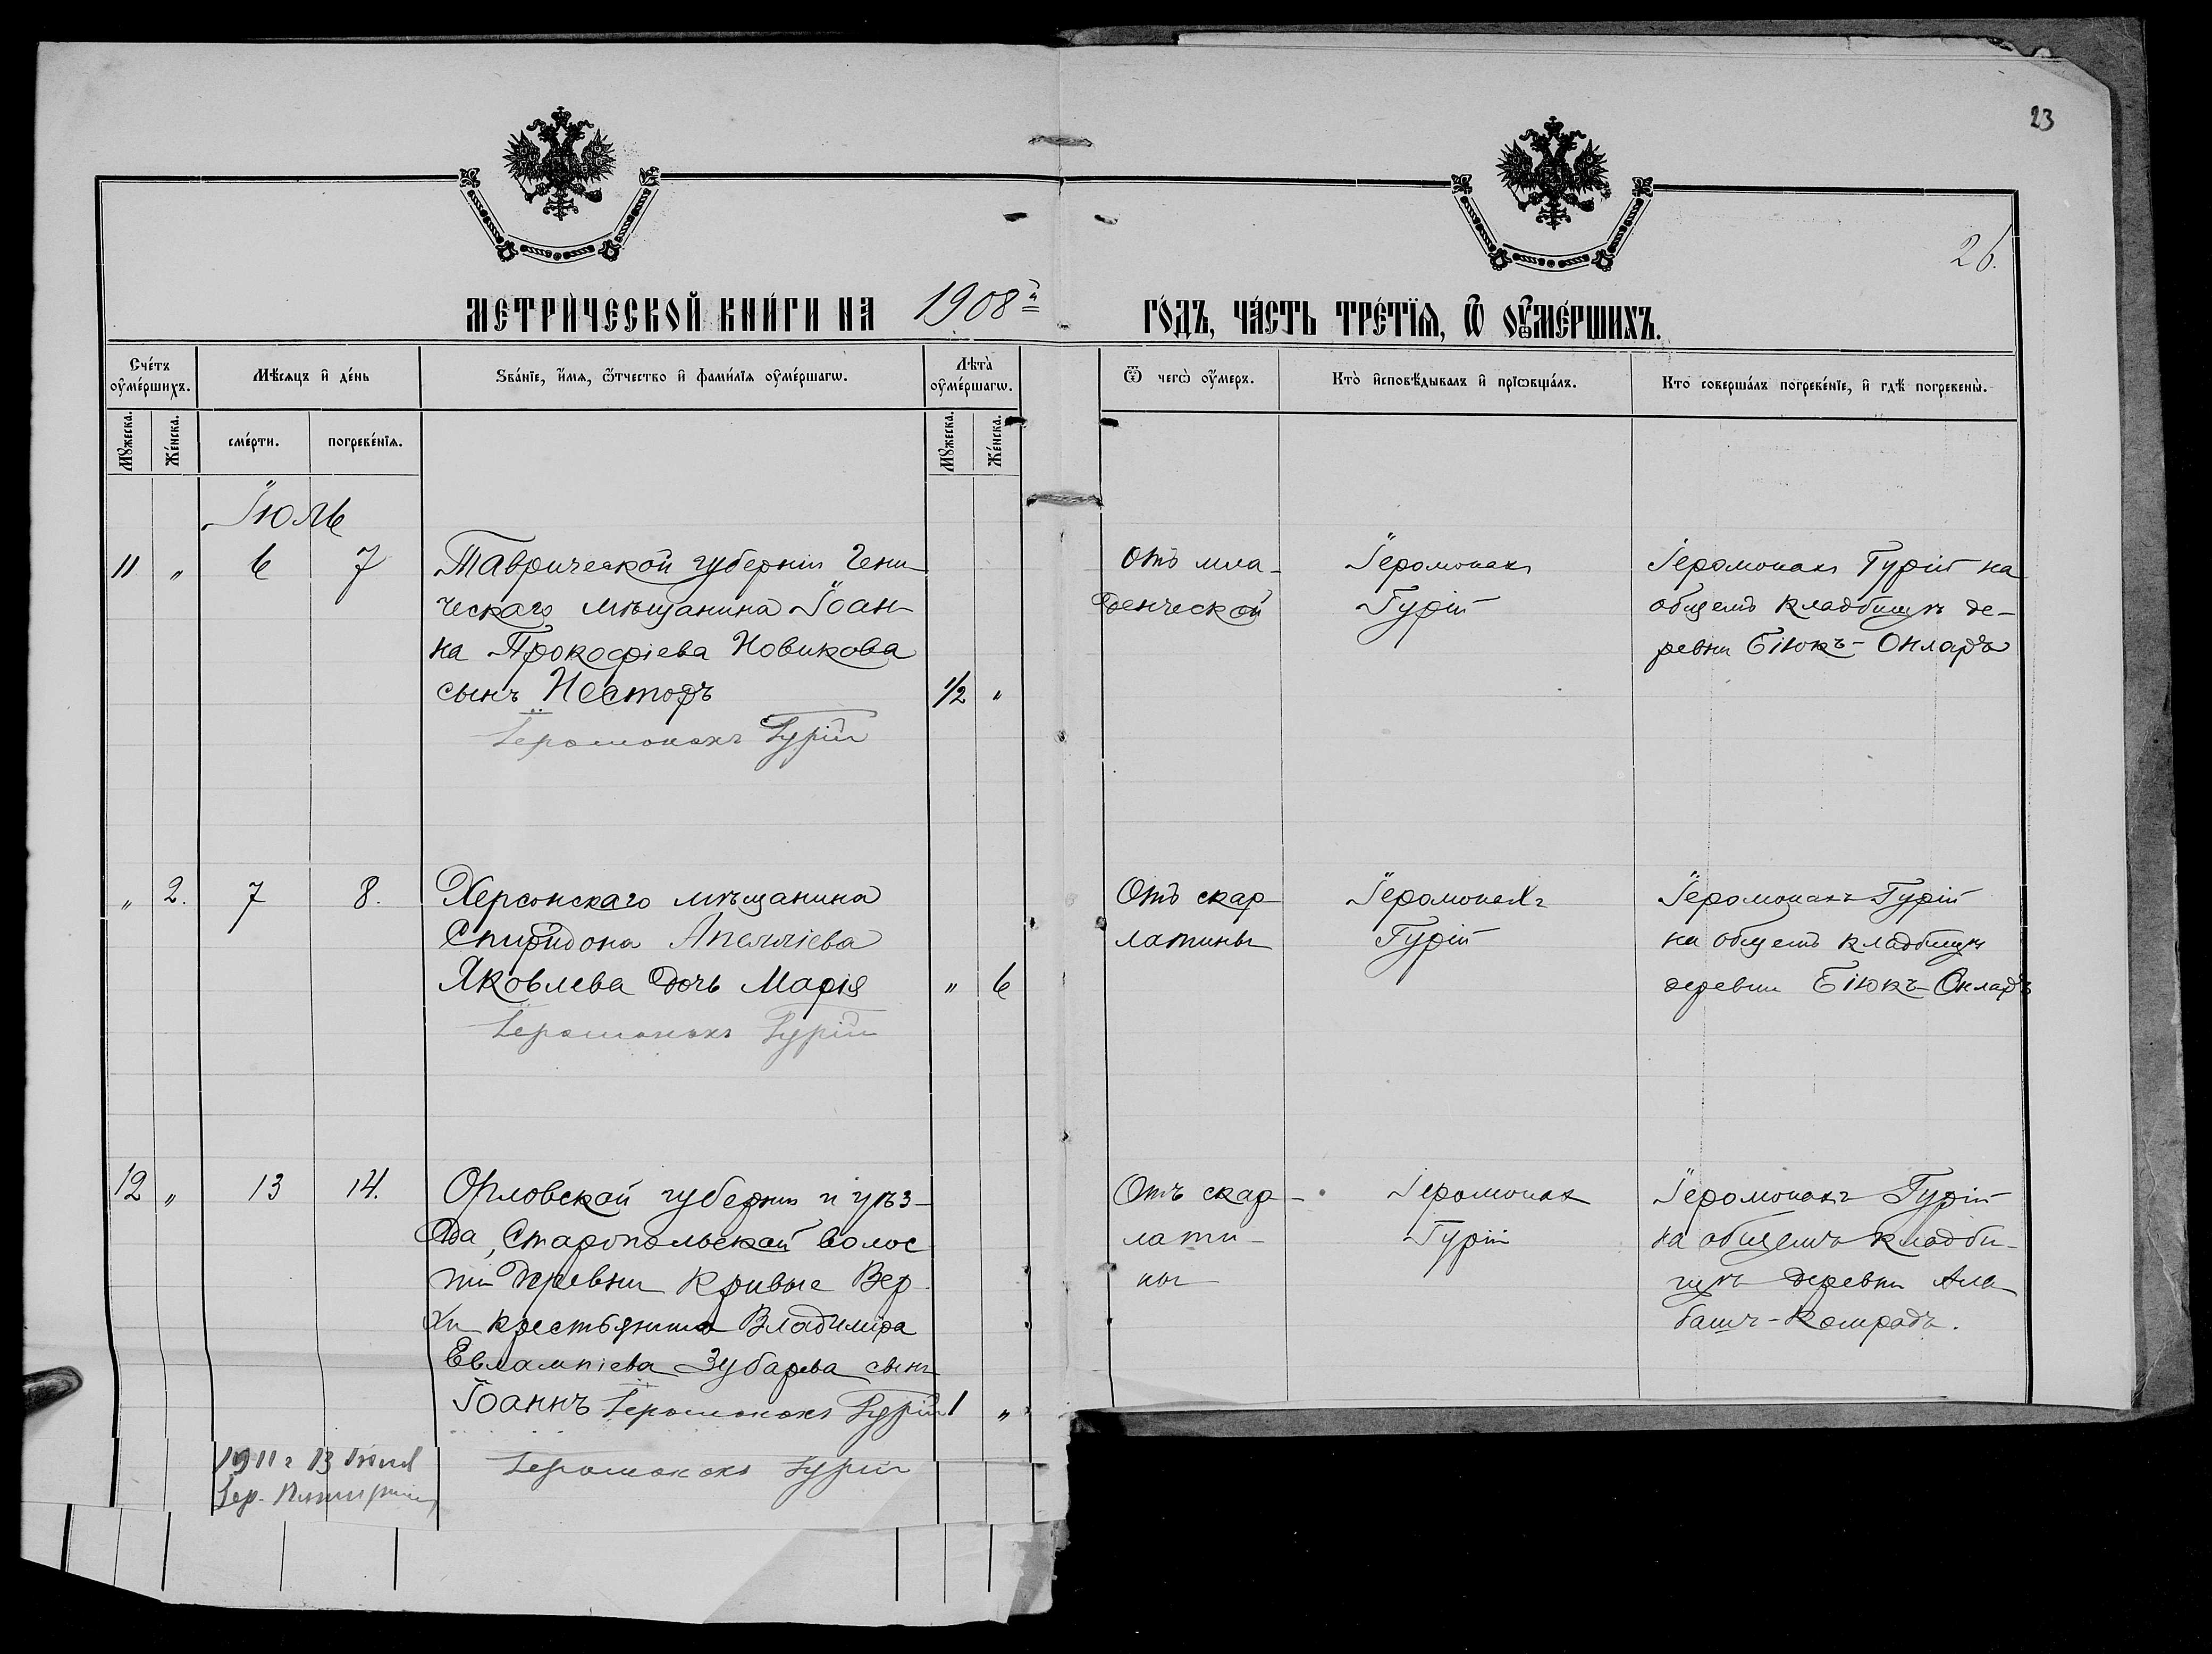 23
26.
МЕТРИЧЕСКОЙ КНИГИ НА 1908й ГОДЪ, ЧАСТЬ ТРЕТІЯ, Ѿ ОУМЕРШИХЪ.
Счетъ оумершихъ.
Мѣсяцъ и день
Званіе, имя, отчество и фамилія оумершагѡ.
Лѣта оумершагѡ.
Ѿ чегѡ оумеръ.
Кто исповѣдывалъ и пріѡбщалъ.
Кто совершалъ погребеніе, и гдѣ погребены.
Мꙋжеска.
Женска.
смерти.
погребенія.
Мꙋжеска.
Женска.
Іюль
11 „ 6 7
Таврической губерніи Гени
ческаго мѣщанина Іоан-
на Прокофіева Новикова
сынъ Несторъ
1/2 „
Іеромонахъ Гурій
Отъ мла-
денческой
Іеромонах
Гурій
Іеромонахъ Гурій на
общемъ кладбищѣ де-
ревни Біюкъ-Онларъ
„ 2. 7 8.
Херсонскаго мѣщанина
Спиридона
Яковлева дочь Марія
„ 6
Іеромонахъ Гурій
Отъ скар
латины
Іеромонахъ
Гурій
Іеромонахъ Гурій
на общемъ кладбищѣ
деревни Біюкъ-Онларъ
12 „ 13 14.
Орловской губерніи и уѣз-
да, Старопольской волос
ти деревни Кривые Вер
хи крестьянина Владиміра
Евлампіева Зубарева сынъ
Іоаннъ Іеромонахъ Гурій
1 „
Отъ скар-
лати-
ны
Іеромонах
Гурій
Іеромонахъ Гурій
на общемъ кладби-
щѣ деревни Али
башъ-Конрадъ.
1911 г 13
Іер.
Іеромонахъ Гурій